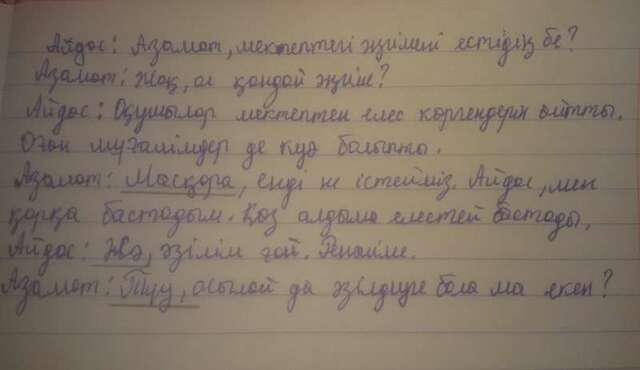 Айдос: Азамат, мектептегі әңгімені естідіңіз бе?
Азамат: Жоқ, ол қандай әңгіме?
Айдос: Оқушылар мектептен елес көргендерін айтты.
Оған мұғалімдер де куә болыпты.
Азамат: Масқара, енді не істейміз. Айдос, мен
қорқа бастадым. Көз алдыма елестей бастады.
Айдос: Жә, әзілім ғой. Ренжіме.
Азамат: Туу, осылай да әзілдеуге бола ма екен?